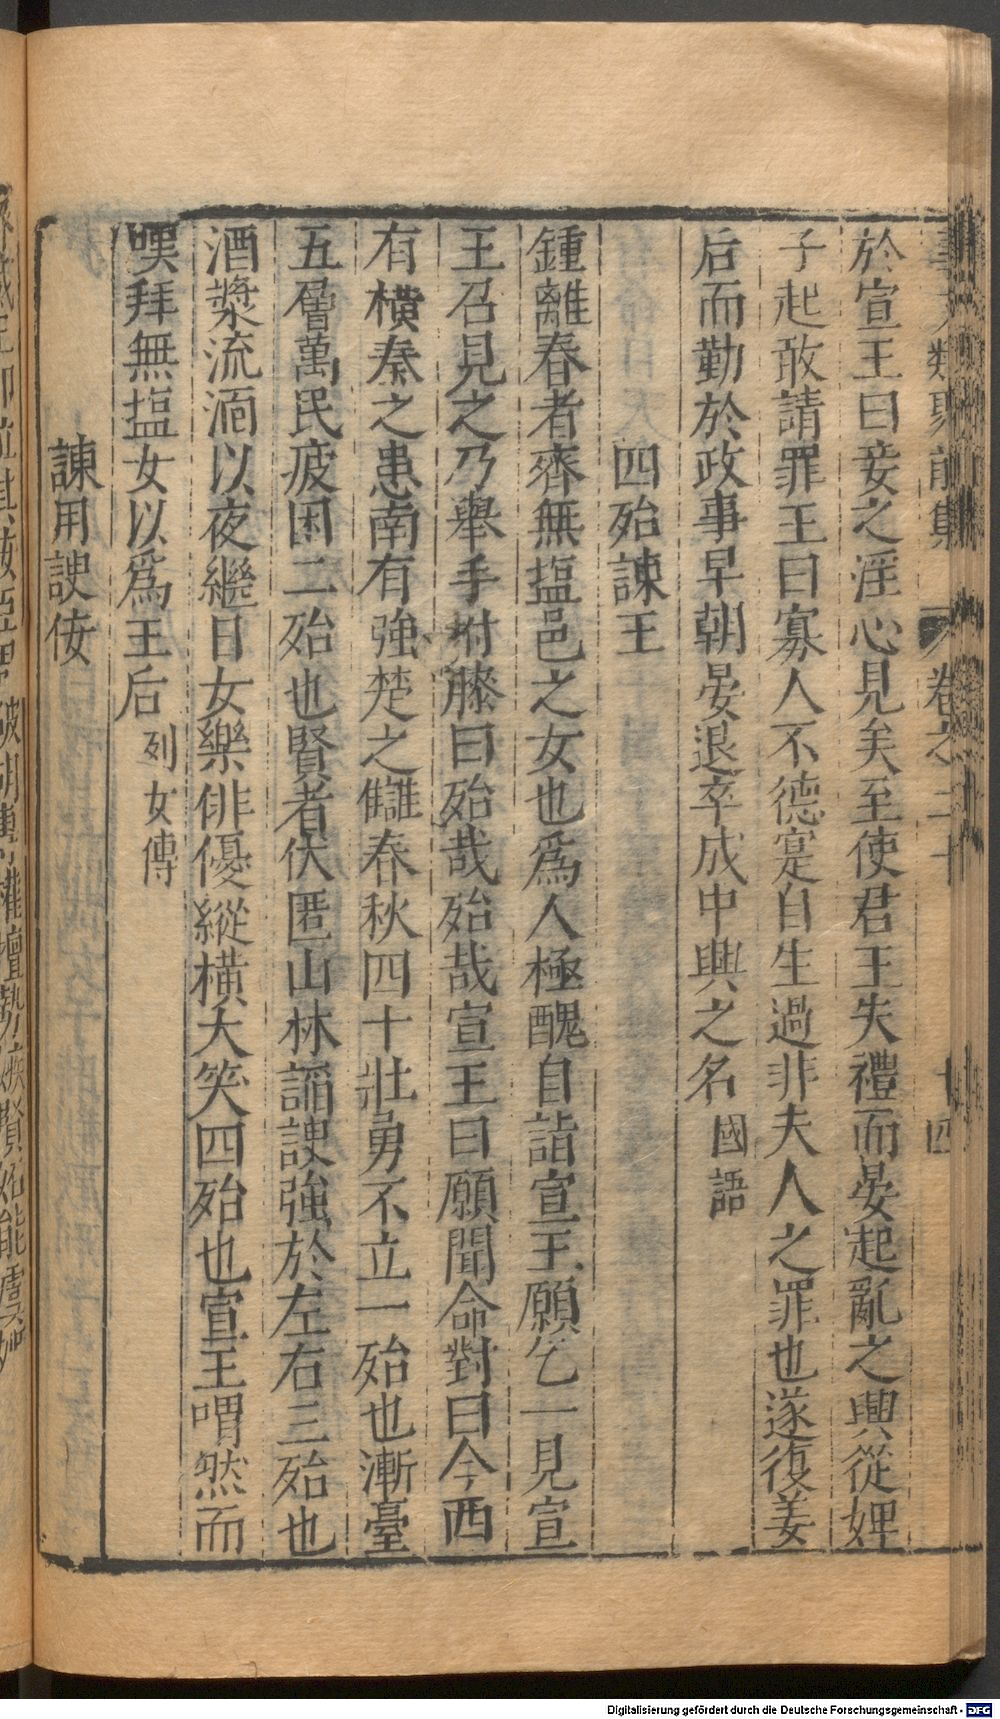 事文類聚前集 卷之二十 十四
於宣王曰妾之淫心見矣至使君王失禮而晏起亂之興從婢
子起敢請罪王曰寡人不德寔自生過非夫人之罪也遂復姜
后而勤於政事早朝晏退卒成中興之名 國語
四殆諫王
鍾離春者齊無塩邑之女也爲人極醜自詣宣王願乞一見宣
王召見之乃舉手拊膝曰殆哉殆哉宣王曰願聞命對曰今西
有橫秦之患南有強楚之讎春秋四十壯勇不立一殆也漸臺
五層萬民疲困二殆也賢者伏匿山林謟諛強於左右三殆也
酒漿流湎以夜繼日女樂俳優縱橫大笑四殆也宣王喟然而
嘆拜無塩女以爲王后 列女傳
諫用諛佞
Digitalisierung gefördert durch die Deutsche Forschungsgemeinschaft - DFG